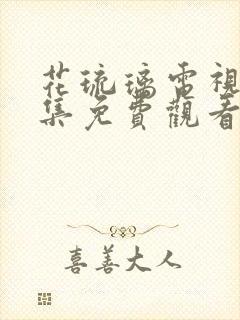 花琉璃電視
集免費觀看
喜善大人